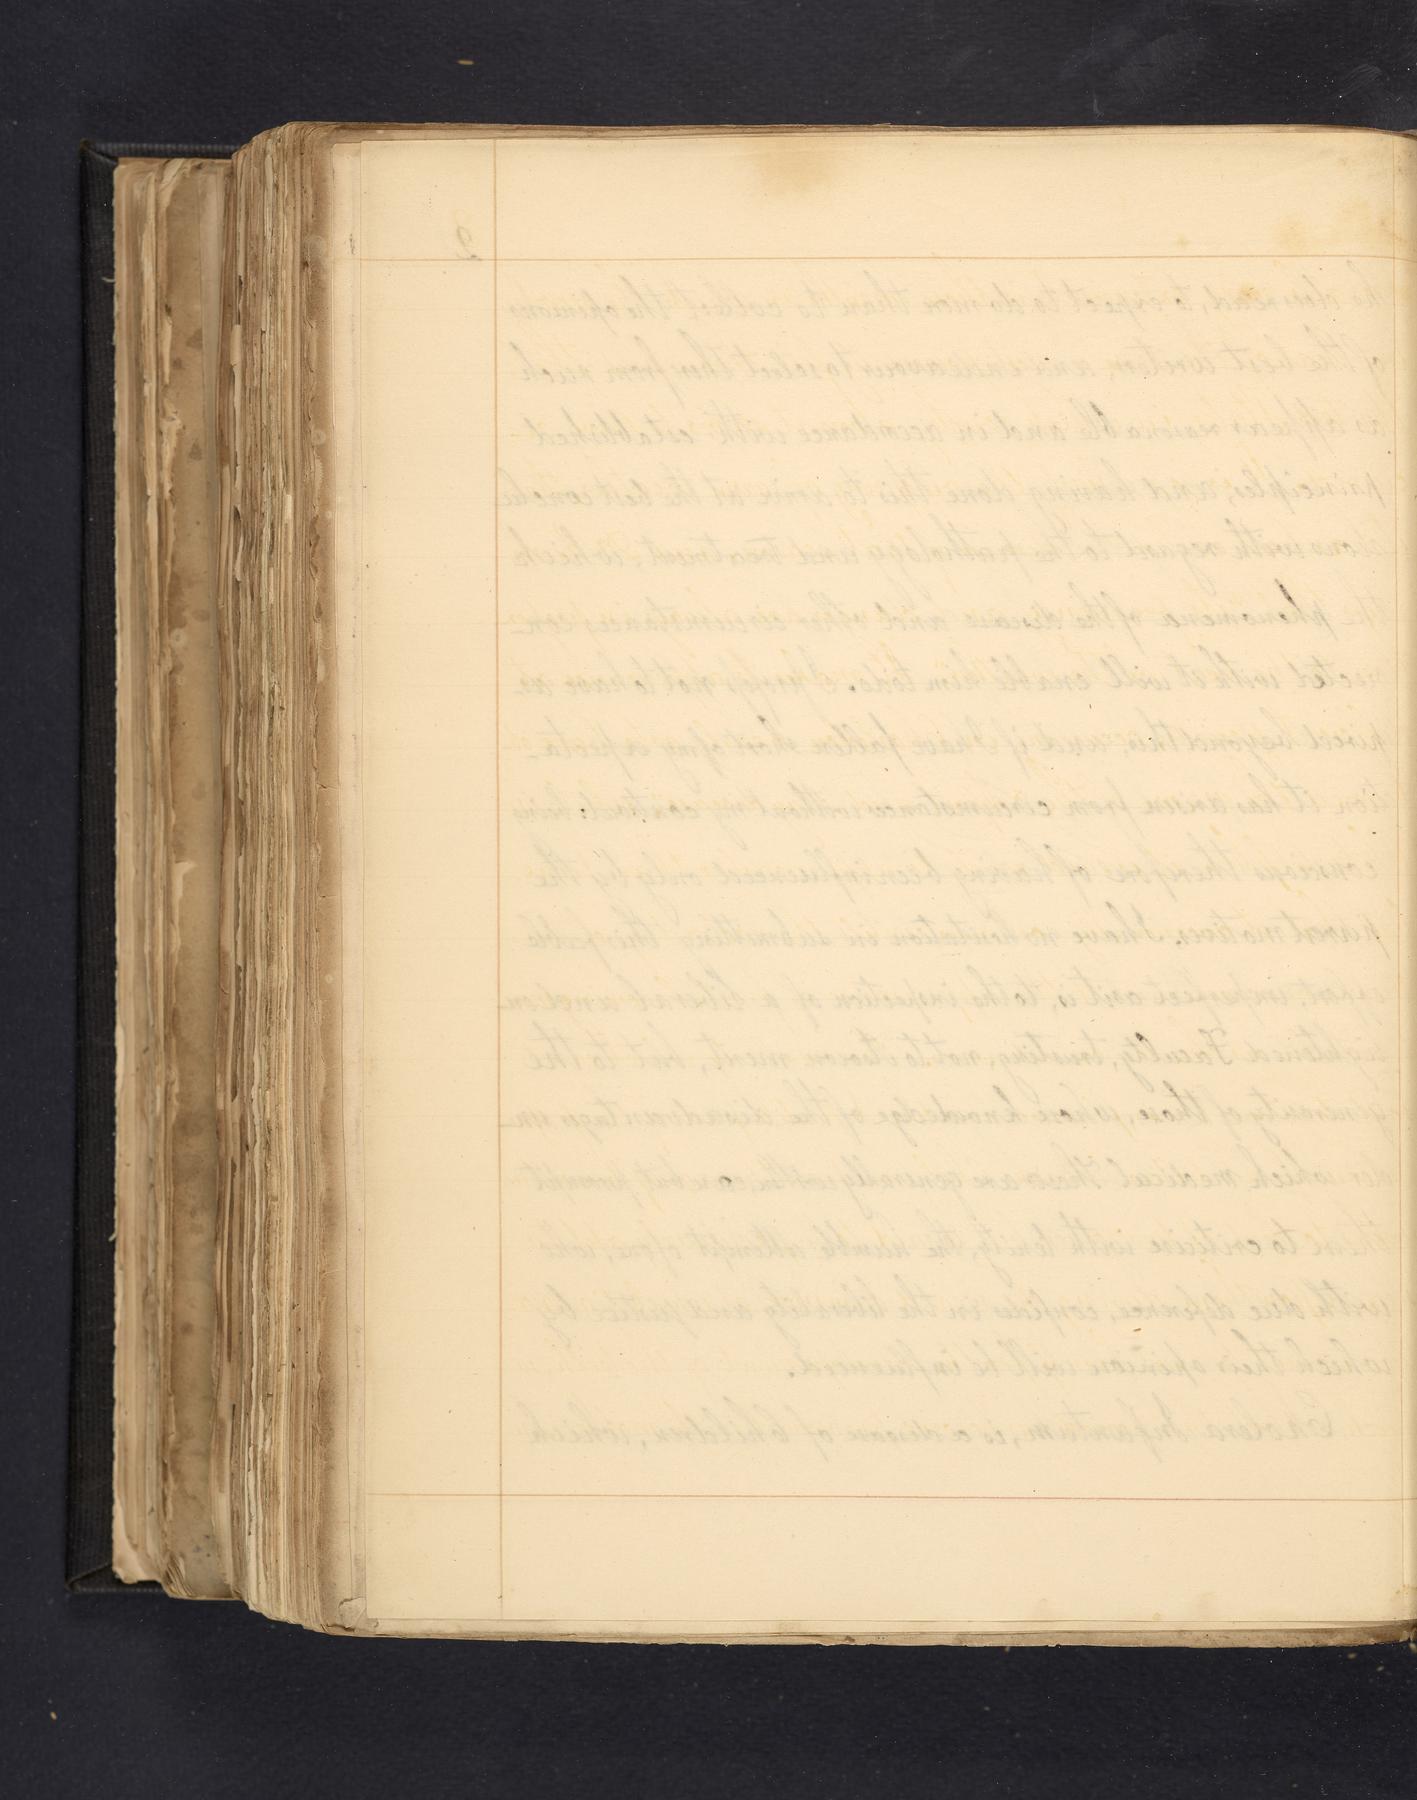 2
he has read, to expect to do more than to collect the opinions
of the best writers, and endeavour to select therefrom such
as appear reasonable and in accordance with established
principles, and having done this to arrive at the best conclu
sions with regard to the pathology and treatment, which
the phenomena of the disease and other circumstances con-
nected with it will enable him to do. I profess not to have as-
pired beyond this, and if I have fallen short of my expecta-
tion it has arisen from circumstances without my control: being
conscious therefore of having been influenced only by the
purest motives, I have no hesitation in submitting this feeble
effort, imperfect as it is, to the inspection of a liberal and en-
lightened Faculty, trusting, not to its own merit, but to the
generosity of those, whose knowledge of the disadvantages un-
der which medical Theses are generally written, can but prompt
them to criticise with lenity, the humble attempt of one, who
with due deference, confides in the liberality and justice by
which their opinion will be influenced.
Cholera Infantum, is a disease of Children, which